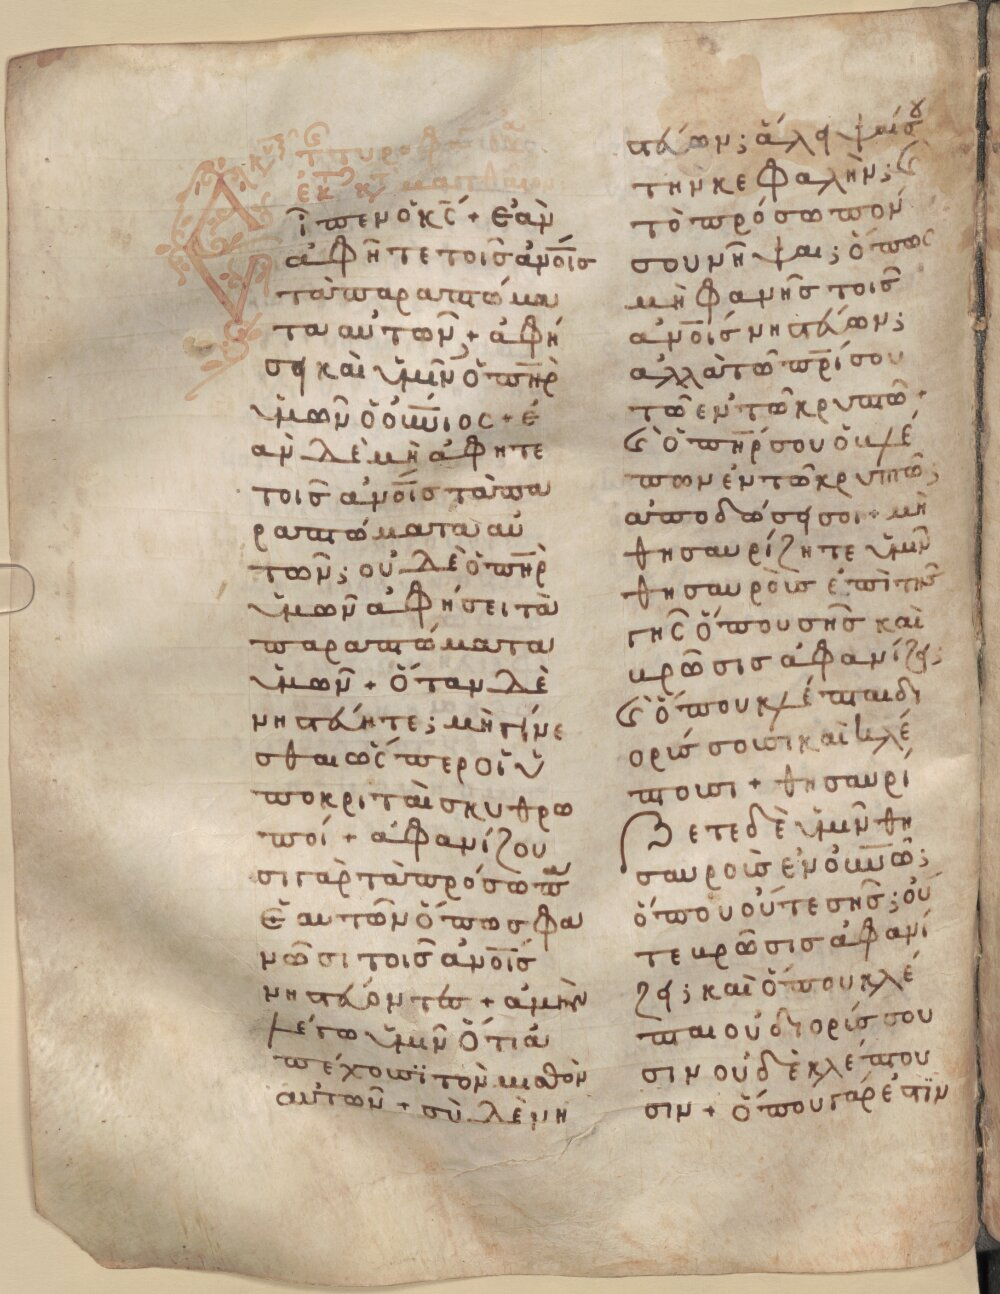 κυ τ τυροφα
ἐκ τ κ ματθαιον
ἶπεν ὁ κς + Ἐὰν
ἀφῆτε τοῖς ἀνοῖς
τὰ παραπτώμα
τα αὐτῶν + ἀφή
σει καὶ ὑμῖν ὁ πηρ
ὑμῶν ὁ οὐνιος + ἐ
ὰν δὲ μὴ ἀφῆτε
τοῖς ἀνοῖς τὰ πα
ραπτώματα αὐ
τῶν; οὐδὲ ὁ πηρ
ὑμῶν ἀφήσει τὰ
παραπτώματα
ὑμῶν + Ὅταν δὲ
νηστεύητε; μὴ γίνε
σθαι ὥσπερ οἱ ὑ
ποκριταὶ σκυθρω
ποί + ἀφανίζου
σι γὰρ τὰ πρόσωπα
ἑαυτῶν ὅπως φα
νῶσι τοῖς ἀνοῖς
νηστεύοντες + ἀμὴν
λέγω ὑμῖν ὅτι ἀ
πέχουσϊ τὸν μισθὸν
αὐτῶν + σὺ δὲ νη
στεύων; ἄλειψαί σου
τὴν κεφαλήν; καὶ
τὸ πρόσωπόν
σου νῆψαι; ὅπως
μὴ φανῆς τοῖς
ἀνοῖς νηστεύων;
ἀλλὰ τῶ πρί σου
τῶ ἐν τῶ κρυπτῶ +
καὶ ὁ πηρ σου ὁ βλέ
πων ἐν τῶ κρυπτῶ;
ἀποδώσει σοι + μὴ
θησαυρίζητε ὑμῖν
θησαυροὺς ἐπὶ τῆς
γῆς ὅπου σὴς καὶ
βρῶσις ἀφανίζει;
καὶ ὅπου κλέπται δι
ορίσσουσι καὶ κλέ
πτουσι + θησαυρί
ζετε δὲ ὑμῖν θη
σαυροὺς ἐν οὐνῶ;
ὅπου οὔτε σῆς; οὔ
τε βρῶσις ἀφανί
ζει; καὶ ὅπου κλέ
πται οὐ διορίσσου
σιν οὐδὲ κλέπτου
σιν + ὅπου γάρ ἐστϊν